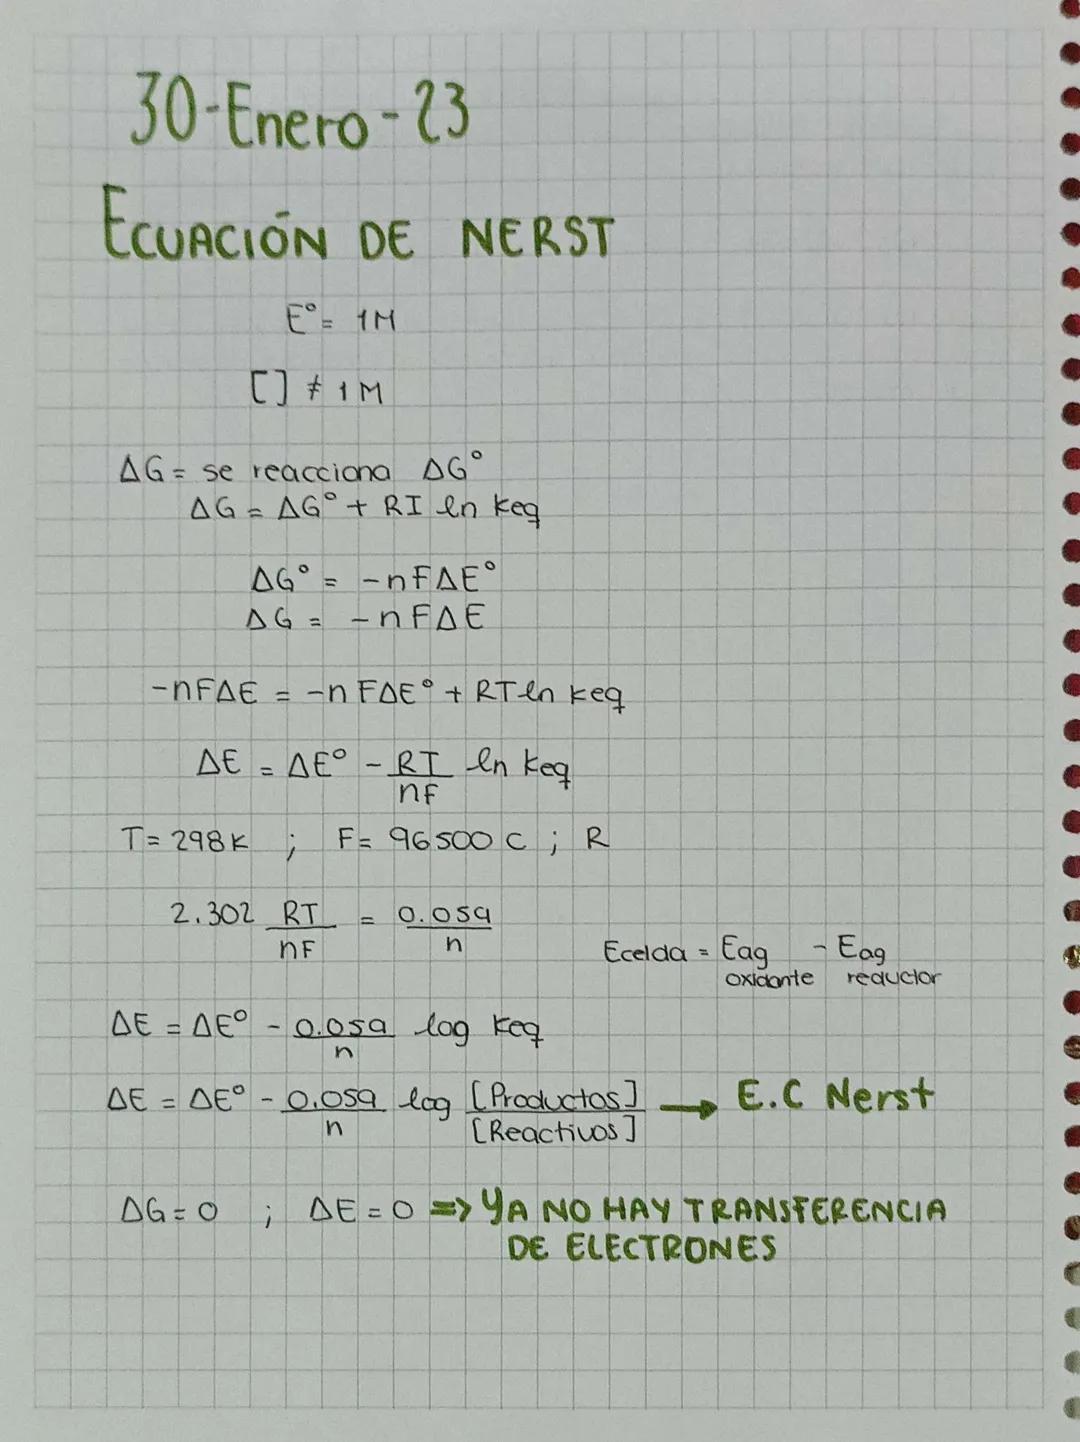 30-Enero-23
ECUACIÓN DE NERST
E° = 1M
[] ≠ 1M
ΔG = se reacciona ΔG°
ΔG = ΔG° + RI ln Keq
ΔG° = -nFΔE°
ΔG = -nFΔE
-nFΔE = -nFΔE° + RT ln Keq
ΔE = ΔE° - RI/nF ln Keq
T = 298K ; F = 96500 C ; R
2.302 RT/nF = 0.059/n
Ecelda = Eag oxidante - Eag reductor
ΔE = ΔE° - 0.059/n log Keq
ΔE = ΔE° - 0.059/n log [Productos]/[Reactivos] → E.C Nerst
ΔG = 0 ; ΔE = 0 => YA NO HAY TRANSFERENCIA
DE ELECTRONES